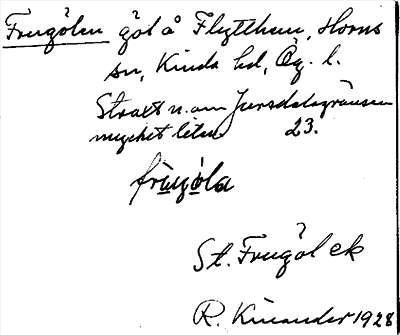 Frugölen göl å Flytthem, Horns
sn, Kinda hd, Ög. l.
Straxt n. om Jursdalagränsen
mycket liten 23.
frùgö̀la
St. Frugöl ek
R. Kinander 1928